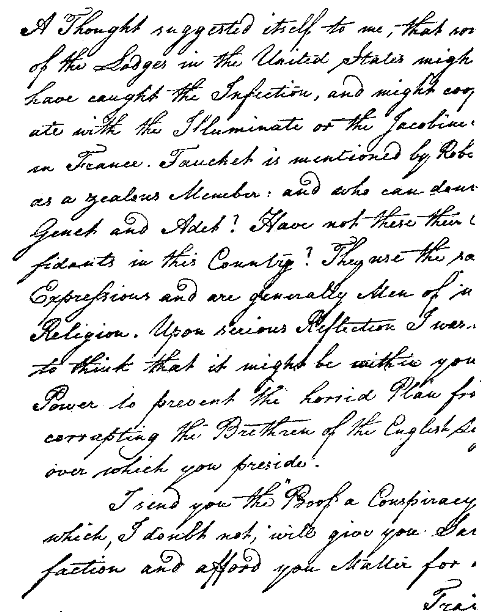 A Thought suggested itself to me, that som
of the Lodges in the United States migh
have caught the Infection, and might coop
ate with the Illuminate or the Jacobine
in France. Fauchet is mentioned by Robe
as a zealous Member: and who can dou
Genet and Adet? Have not these their
fidants in this Country? They use the sa
Expressions and are generally Men of n
Religion. Upon serious Reflection I was
to think that it might be within you
Power to prevent the horrid Plan fro
corrupting the Brethren of the English Lo
over which you preside.
I send you the "Proof of a Conspiracy
which, I doubt not, will give you Sat
faction and afford you Matter for a
Trai